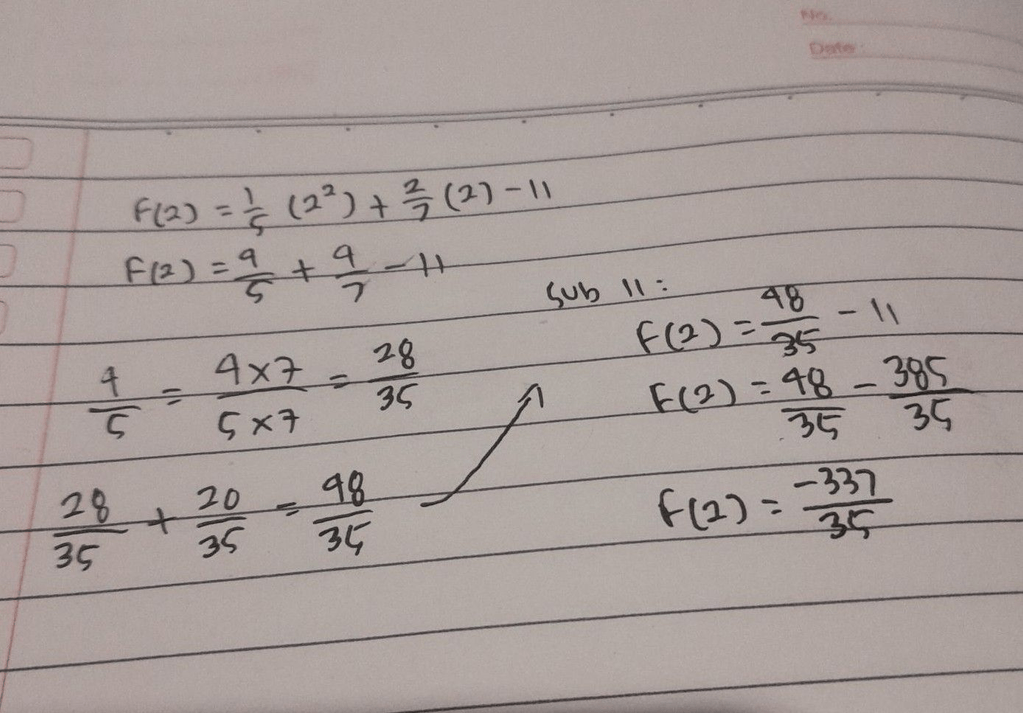 No.
Date:
F(2) = 1/5 (2²) + 2/7 (2) - 11
F(2) = 4/5 + 4/7 - 11
4/5 = 4×7/5×7 = 28/35
28/35 + 20/35 = 48/35
Sub 11:
F(2) = 48/35 - 11
F(2) = 48/35 - 385/35
F(2) = -337/35